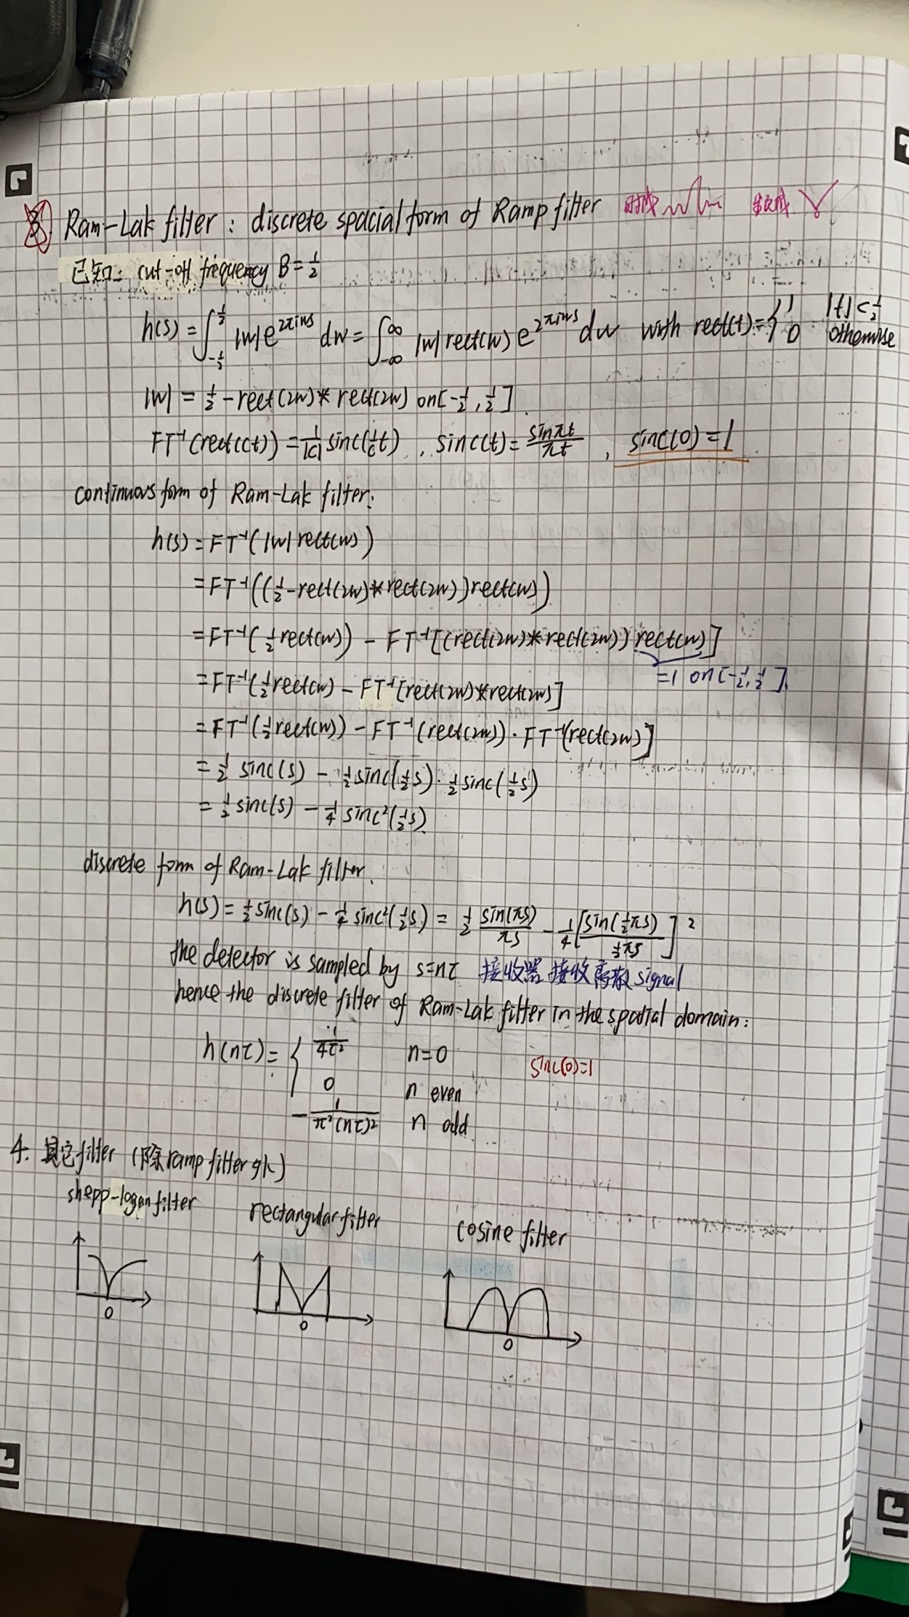 3) Ram-Lak filter : discrete spacial form of Ramp filter 时域 频域
已知: cut-off frequency B=1/2
h(s) = ∫_{-1/2}^{1/2} |w| e^{2πiws} dw = ∫_{-∞}^{∞} |w| rect(w) e^{2πiws} dw with rect(t) = { 1 |t|<1/2
0 otherwise
|w| = 1/2 - rect(2w) * rect(2w) on [-1/2, 1/2].
FT⁻¹(rect(ct)) = 1/|c| sinc(1/c t), sinc(t) = sinπt/πt, sinc(0)=1
continuous form of Ram-Lak filter:
h(s) = FT⁻¹(|w| rect(w))
= FT⁻¹((1/2 - rect(2w) * rect(2w)) rect(w))
= FT⁻¹(1/2 rect(w)) - FT⁻¹[(rect(2w) * rect(2w)) rect(w)]
=1 on [-1/2, 1/2].
= FT⁻¹(1/2 rect(w) - FT⁻¹[rect(2w) * rect(2w)]
= FT⁻¹(1/2 rect(w)) - FT⁻¹(rect(2w)) · FT⁻¹(rect(2w)]
= 1/2 sinc(s) - 1/2 sinc(1/2 s) · 1/2 sinc(1/2 s)
= 1/2 sinc(s) - 1/4 sinc²(1/2 s).
discrete form of Ram-Lak filter.
h(s) = 1/2 sinc(s) - 1/4 sinc²(1/2 s) = 1/2 sin(πs)/πs - 1/4 [sin(1/2 πs)/(1/2 πs)]²
the detector is sampled by s=nτ 接收器接收离散 signal
hence the discrete filter of Ram-Lak filter in the spatial domain:
h(nτ) = { 1/4τ² n=0 sinc(0)=1
0 n even
-1/π²(nτ)² n odd
4. 其它 filter (除 ramp filter 外)
shepp-logan filter rectangular filter cosine filter
0 0 0